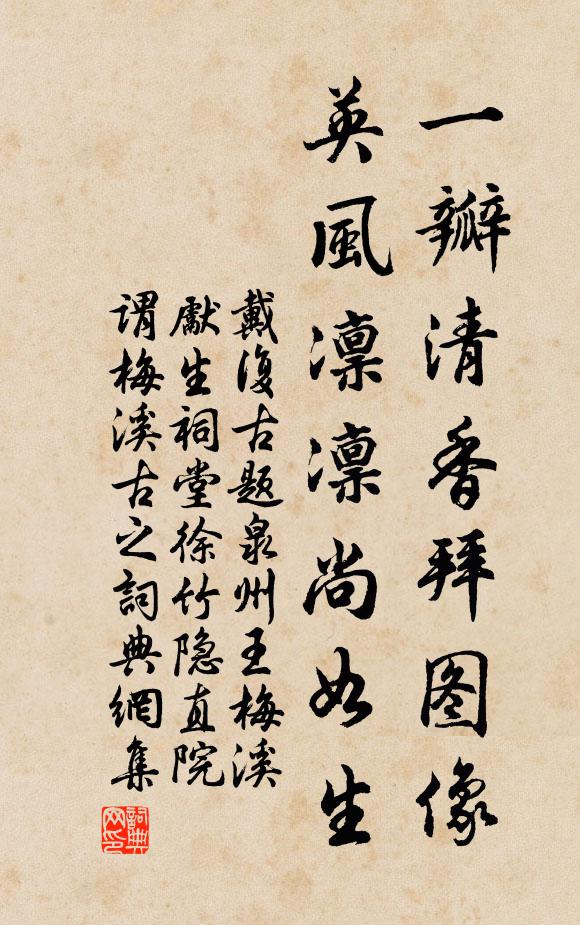 一瓣清香拜图像
英風凛凛尚如生
戴復古题泉州王梅溪
獻生祠堂徐竹隐直院
谓梅溪古之詞典網集
詞典
网印